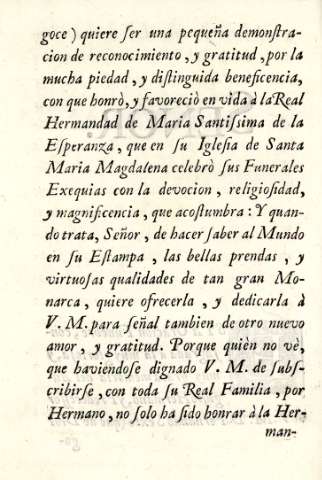 goce) quiere ſer una pequeña demonſtra-
cion de reconocimiento, y gratitud, por la
mucha piedad, y diſtinguida beneficencia,
con que honrò, y favoreciò en vida à la Real
Hermandad de Maria Santiſsima de la
Eſperanza, que en ſu Igleſia de Santa
Maria Magdalena celebrò ſus Funerales
Exequias con la devocion, religioſidad,
y magnificencia, que acoſtumbra: Y quan-
do trata, Señor, de hacer ſaber al Mundo
en ſu Eſtampa, las bellas prendas, y
virtuoſas qualidades de tan gran Mo-
narca, quiere ofrecerla, y dedicarla à
V. M. para ſeñal tambien de otro nuevo
amor, y gratitud. Porque quièn no vè,
que haviendoſe dignado V. M. de ſubſ-
cribirſe, con toda ſu Real Familia, por
Hermano, no ſolo ha ſido honrar à la Her-
man-